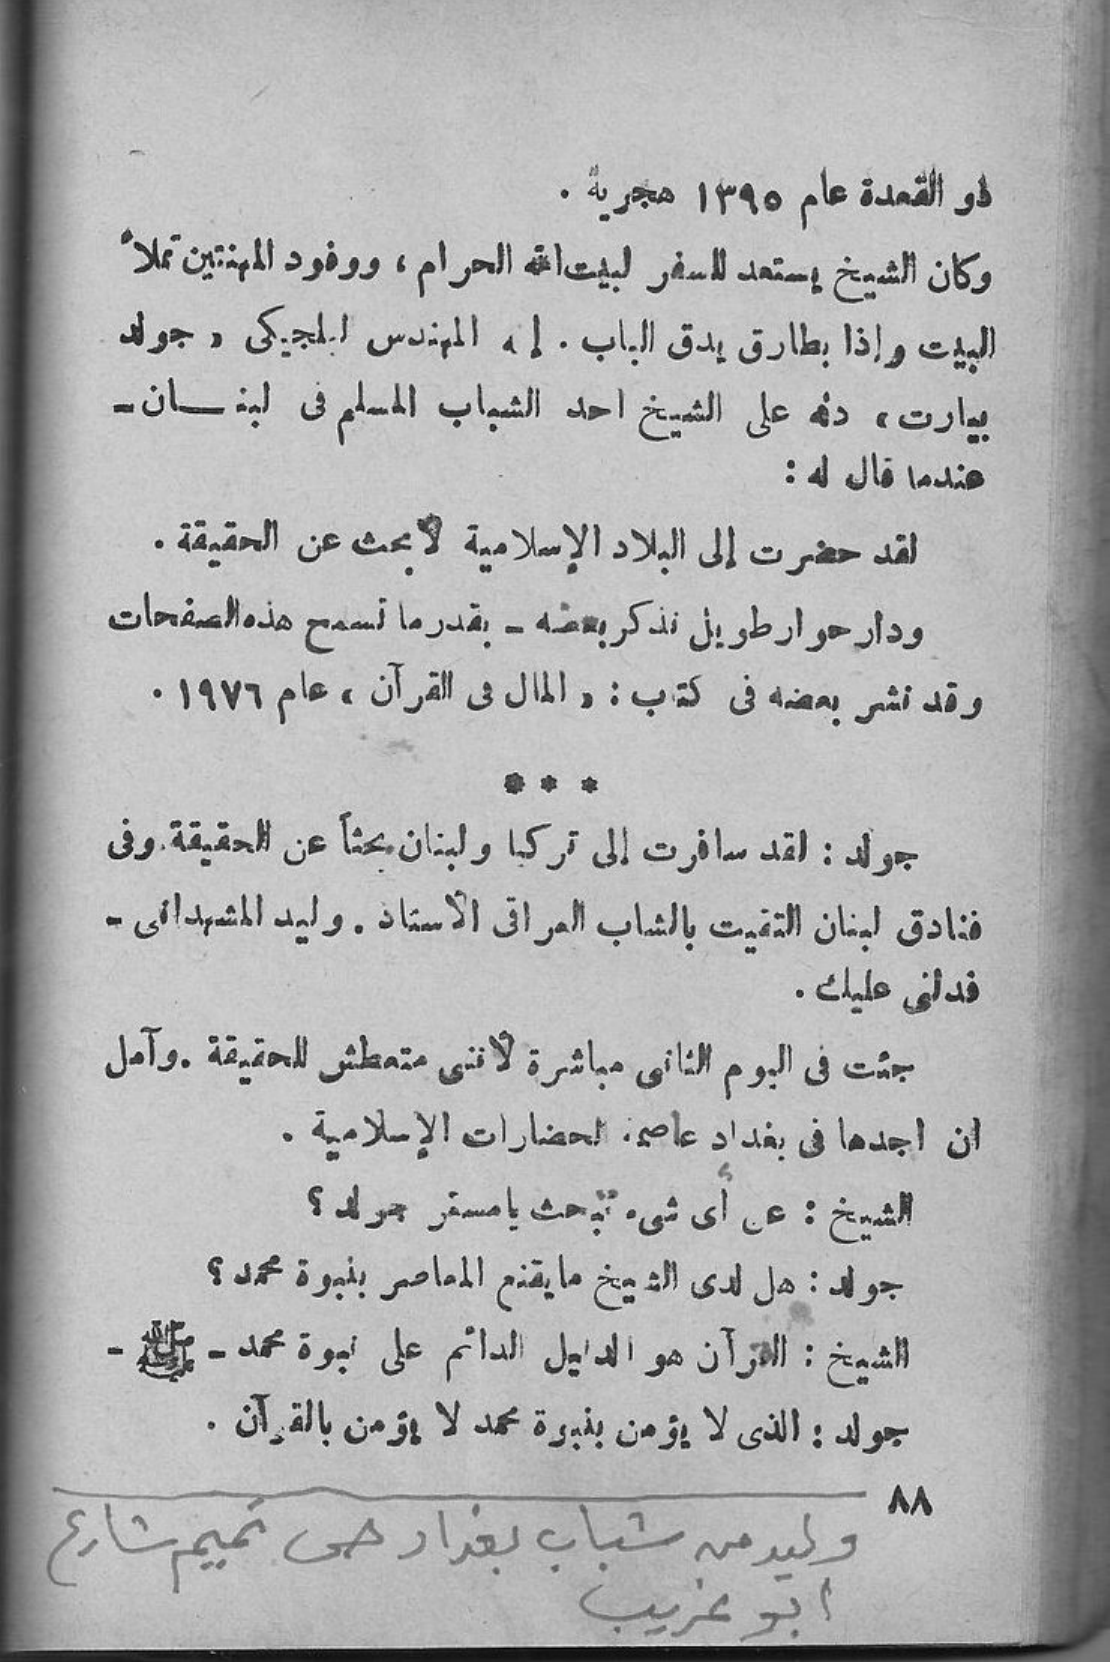 ذو القعدة عام ١٣٩٥ هجرية .
وكان الشيخ يستعد للسفر لبيت الله الحرام ، ووفود المهنئين تملأ
البيت وإذا بطارق يدق الباب . إنه المهندس البلجيكى « جولد
بيارت » دله على الشيخ احد الشباب المسلم فى لبنـــان ـ
عندما قال له :
لقد حضرت إلى البلاد الإسلامية لأبحث عن الحقيقة .
ودار حوار طويل نذكر بعضه ـ بقدر ما تسمح هذه الصفحات
وقد نشر بعضه فى كتاب : « المال فى القرآن » عام ١٩٧٦ .
* * *
جولد : لقد سافرت إلى تركيا ولبنان بحثاً عن الحقيقة . وفى
فنادق لبنان التقيت بالشاب العراقى الأستاذ . وليد المشهدانى ـ
فدلنى عليك .
جئت فى اليوم الثانى مباشرة لأننى متعطش للحقيقة . وآمل
ان اجدها فى بغداد عاصمة الحضارات الإسلامية .
الشيخ : عن أى شىء تبحث يا مستر جولد ؟
جولد : هل لدى الشيخ ما يقنع المعاصر بنبوة محمد ؟
الشيخ : القرآن هو الدليل الدائم على نبوة محمد ـ ﷺ ـ
جولد : الذى لا يؤمن بنبوة محمد لا يؤمن بالقرآن .
٨٨
وليد من شباب بغداد حى تميم شارع
ابو غريب